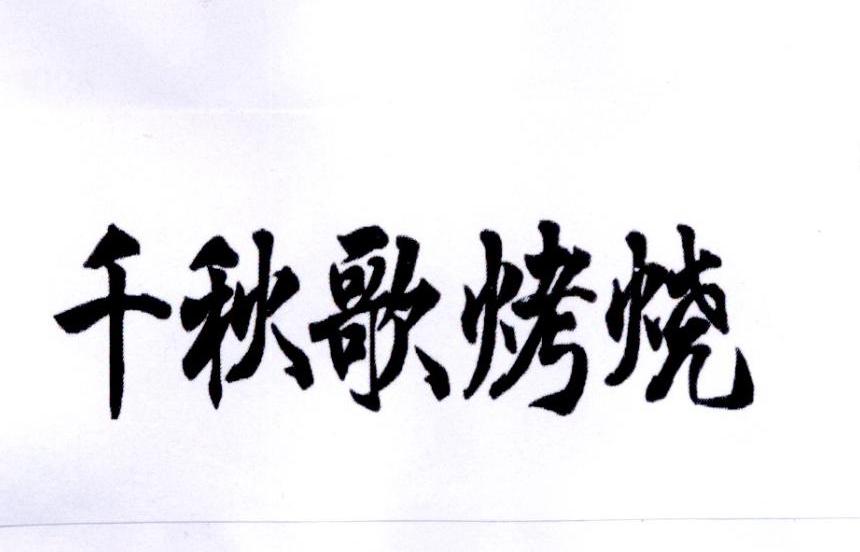 千秋歌烤烧